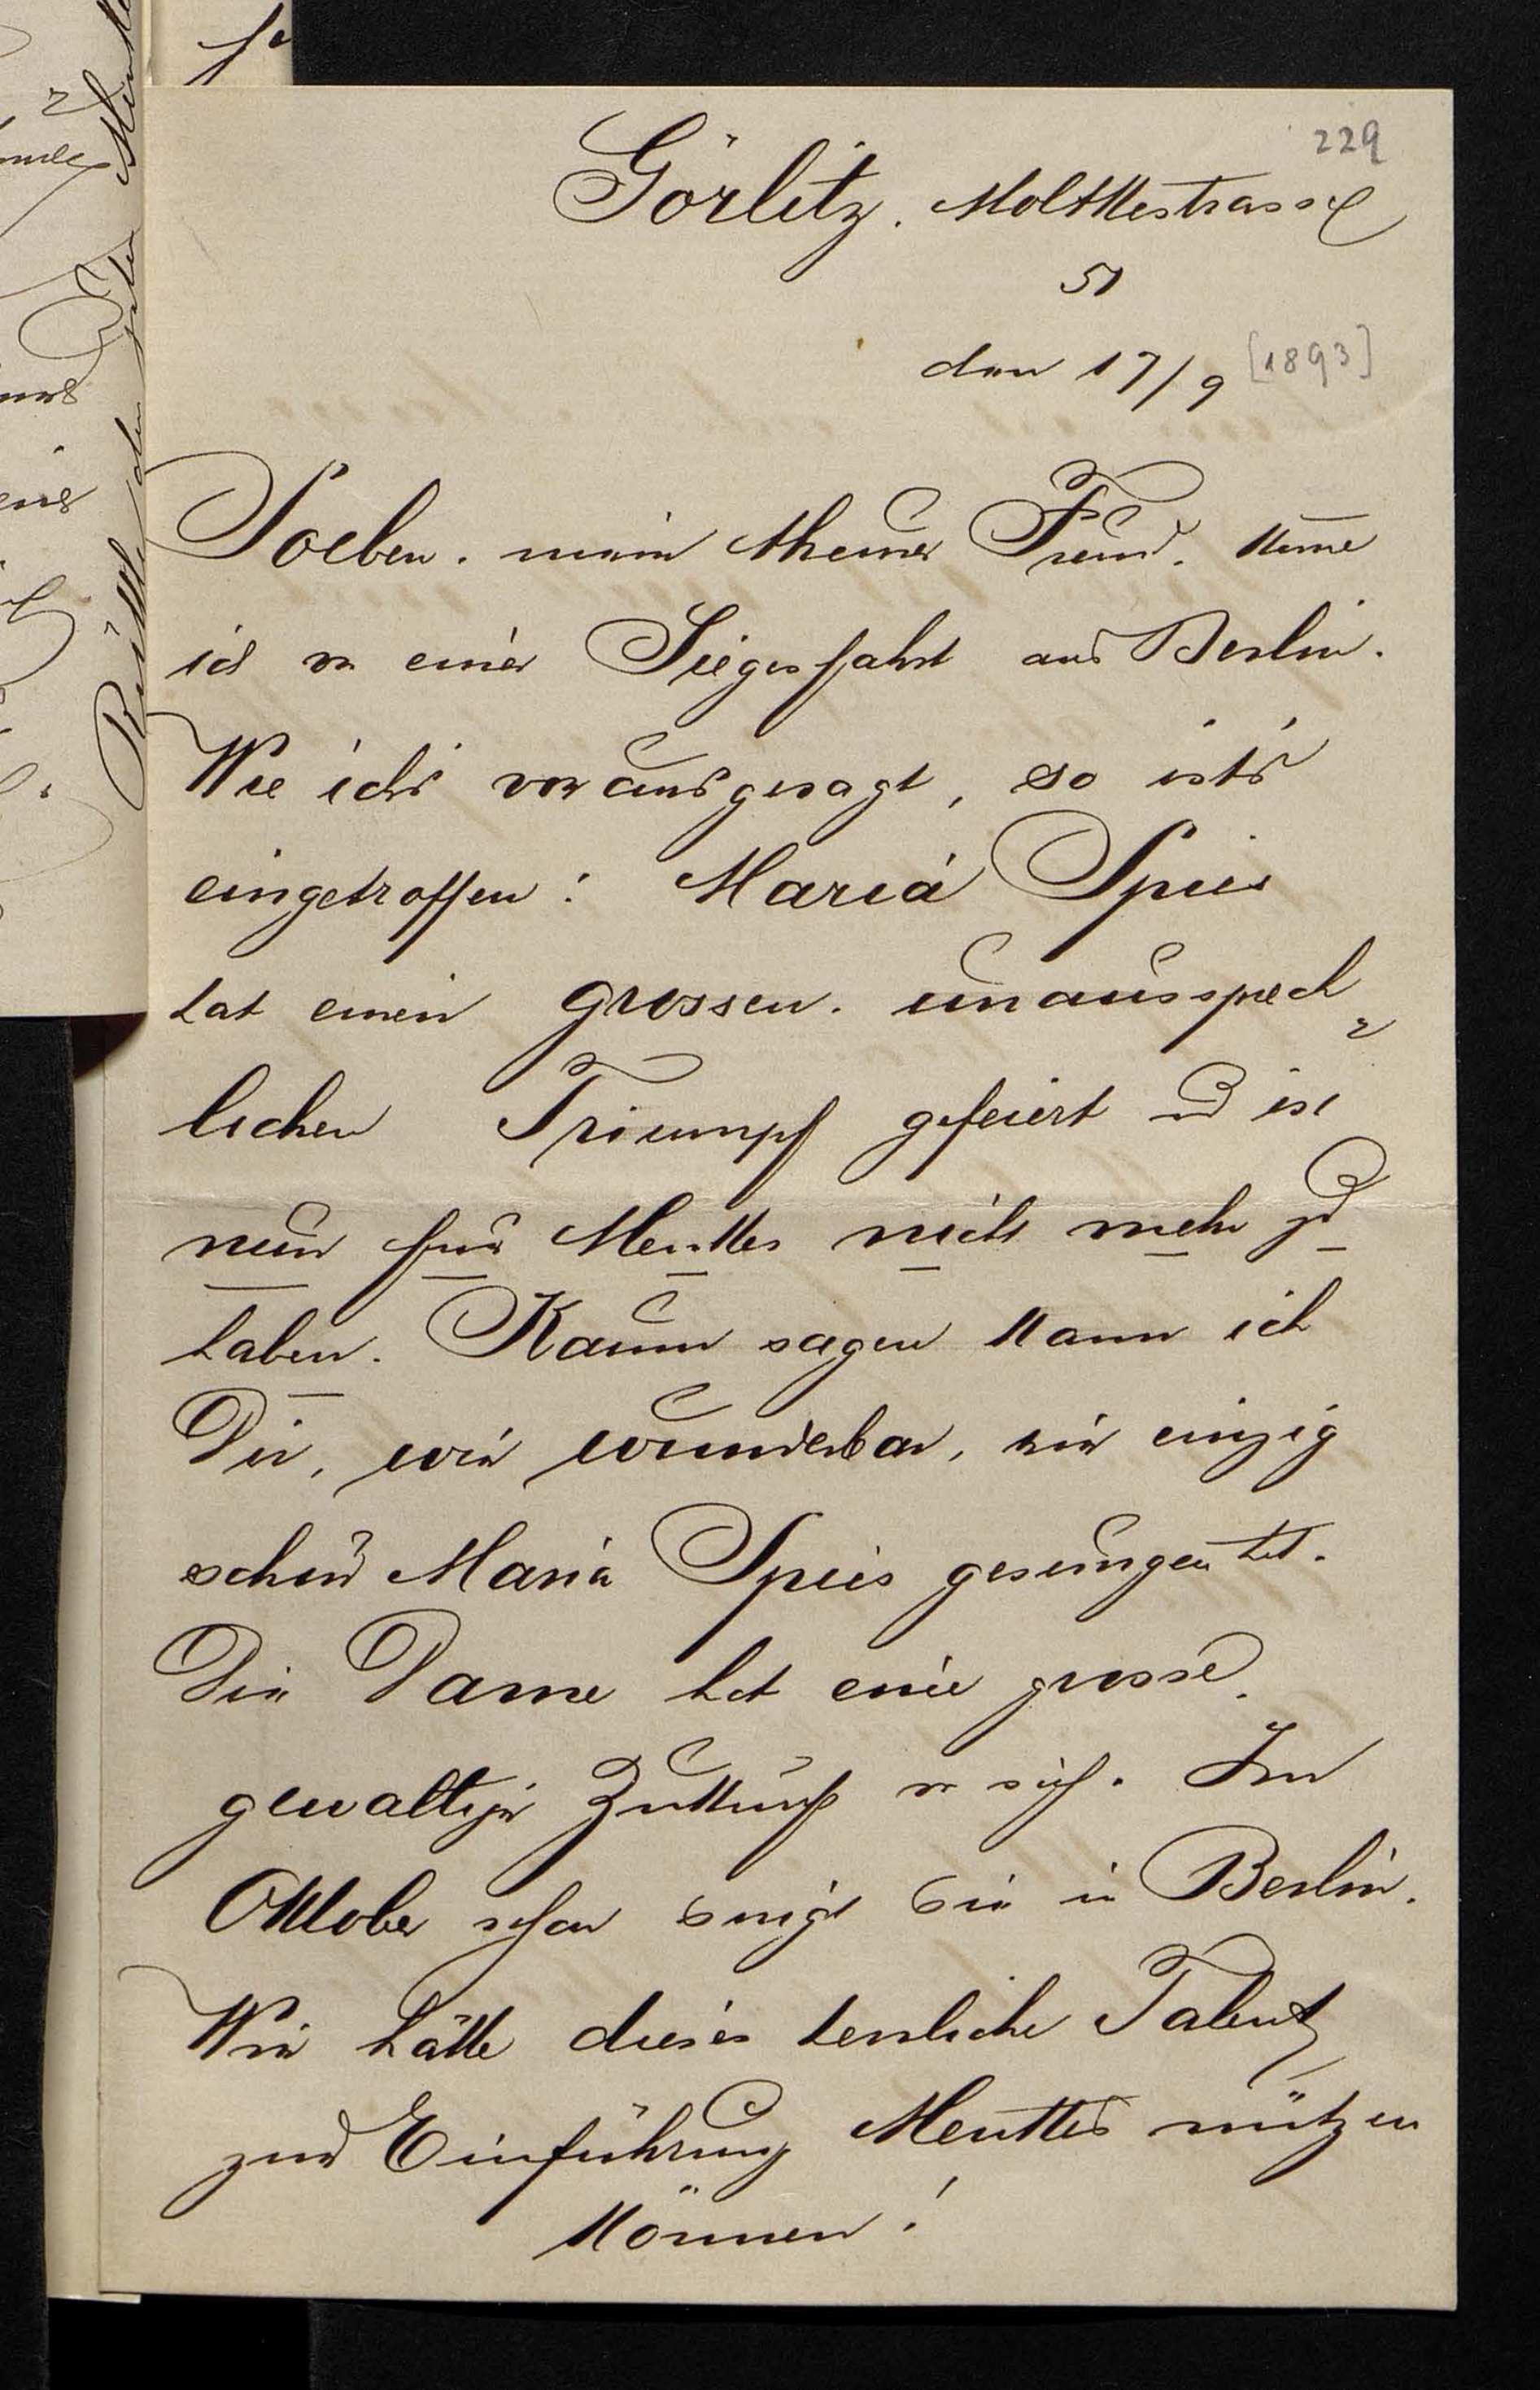 229
Görlitz. Molktestrasse
51
den 17/9 [1893]
Soeben, mein theurer Freund, kome
ich von einer Siegesfahrt aus Berlin.
Wie ichs vorausgesagt, so ists
eingetroffen: Maria Spies
hat einen grossen, unaussprech
lichen Triumpf gefeiert und ist
nun für Menkes nicht mehr zu
haben. Kaum sagen kann ich
Dir, wie wunderbar, wie einzig
schön Maria Spies gesungen hat.
Die Dame hat eine grosse,
gewaltige Zukunft vor sich. Im
Oktober schon singt sie in Berlin.
Wie hätte dieses herrliche Talent
zur Einführung Menkes nützen
können!